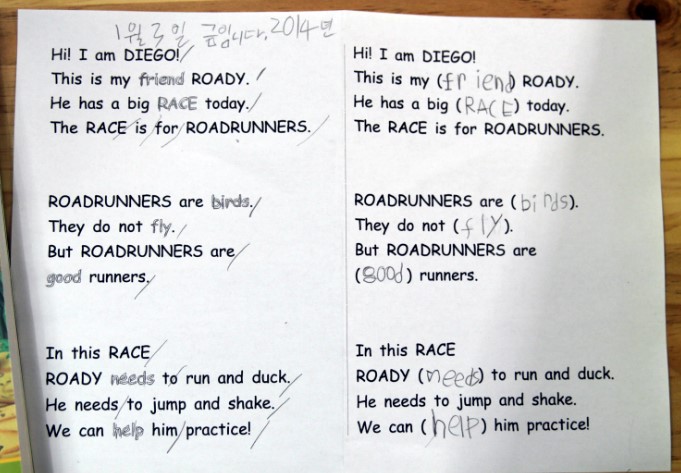 1월 3일 금입니다. 2014년
Hi! I am DIEGO!
This is my friend ROADY.
He has a big RACE today.
The RACE is for ROADRUNNERS.
ROADRUNNERS are birds.
They do not fly.
But ROADRUNNERS are
good runners.
In this RACE
ROADY needs to run and duck.
He needs to jump and shake.
We can help him practice!
Hi! I am DIEGO!
This is my (friend) ROADY.
He has a big (RACE) today.
The RACE is for ROADRUNNERS.
ROADRUNNERS are (birds).
They do not (fly).
But ROADRUNNERS are
(good) runners.
In this RACE
ROADY (needs) to run and duck.
He needs to jump and shake.
We can (help) him practice!